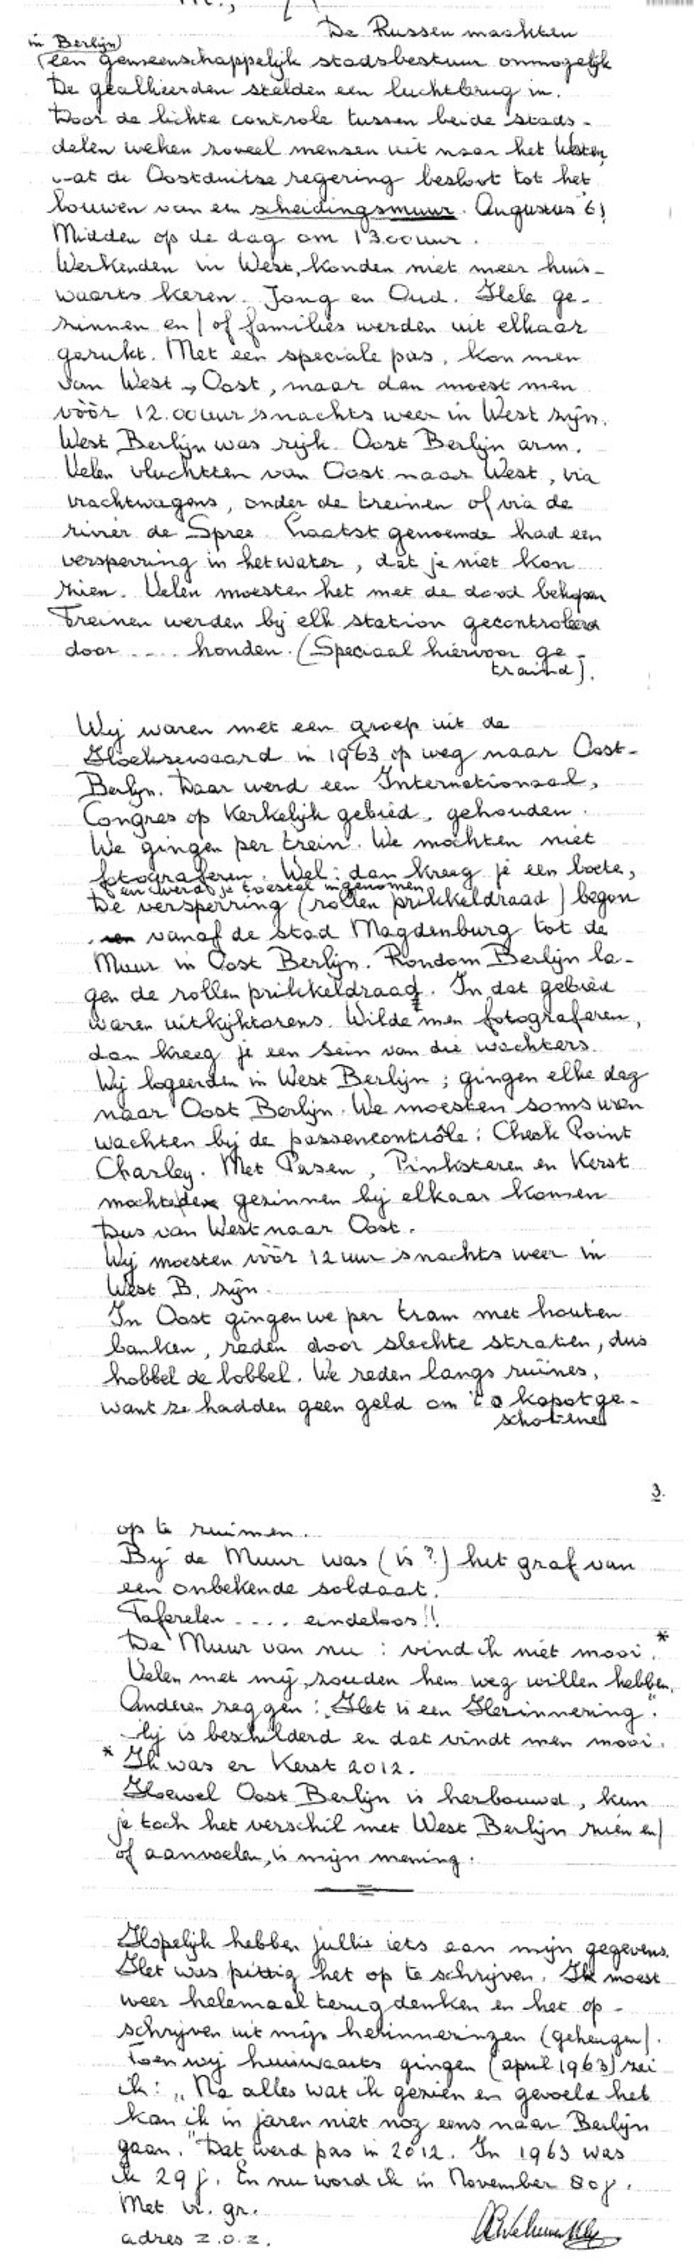 De Russen maakten
in Berlijn)
(een gemeenschappelijk stadsbestuur onmogelijk
De geallieerden stelden een luchtbrug in.
Door de lichte controle tussen beide stads-
delen weken zoveel mensen uit naar het Westen,
wat de Oostduitse regering besloot tot het
bouwen van een scheidingsmuur. Augustus '61
Midden op de dag om 13.00 uur.
Werkenden in West, konden niet meer huis-
waarts keren. Jong en Oud. Hele ge-
zinnen en/of families werden uit elkaar
gerukt. Met een speciale pas, kon men
van West → Oost, maar dan moest men
vòòr 12.00 uur s'nachts weer in West zijn.
West Berlijn was rijk. Oost Berlijn arm.
Velen vluchtten van Oost naar West, via
vrachtwagens, onder de treinen of via de
rivier de Spree. Laatst genoemde had een
versperring in het water, dat je niet kon
zien. Velen moesten het met de dood bekopen
Treinen werden bij elk station gecontroleerd
door .... honden. (Speciaal hiervoor ge-
traind).
Wij waren met een groep uit de
Hoeksewaard in 1963 op weg naar Oost-
Berlijn. Daar werd een Internationaal,
Congres op Kerkelijk gebied, gehouden.
We gingen per trein. We mochten niet
fotograferen. Wel: dan kreeg je een boete,
en werd je toestel ingenomen
De versperring (rollen prikkeldraad) begon
vanaf de stad Magdenburg tot de
Muur in Oost Berlijn. Rondom Berlijn la-
gen de rollen prikkeldraad. In dat gebied
waren uitkijktorens. Wilde men fotograferen,
dan kreeg je een sein van die wachters.
Wij logeerden in West Berlijn; gingen elke dag
naar Oost Berlijn. We moesten soms uren
wachten bij de passencontrôle: Check Point
Charley. Met Pasen, Pinksteren en Kerst
mochten gezinnen bij elkaar komen
Dus van West naar Oost.
Wij moesten vòòr 12 uur s'nachts weer in
West B. zijn.
In Oost gingen we per tram met houten
banken, reden door slechte straten, dus
hobbel de bobbel. We reden langs ruïnes,
want ze hadden geen geld om 't kapotge-
schotene
3.
op te ruimen.
Bij de Muur was (is?) het graf van
een onbekende soldaat.
Taferelen .... eindeloos!!
De Muur van nu: vind ik niet mooi.*
Velen met mij, zouden hem weg willen hebben.
Anderen zeggen: „Het is een Herinnering".
Hij is beschilderd en dat vindt men mooi.
* Ik was er Kerst 2012.
Hoewel Oost Berlijn is herbouwd, kun
je toch het verschil met West Berlijn zien en/
of aanvoelen, is mijn mening.
Hopelijk hebben jullie iets aan mijn gegevens.
Het was pittig het op te schrijven. Ik moest
weer helemaal terug denken en het op-
schrijven uit mijn herinneringen (geheugen).
Toen wij huiswaarts gingen (april 1963) zei
ik: „Na alles wat ik gezien en gevoeld heb
kan ik in jaren niet nog eens naar Berlijn
gaan." Dat werd pas in 2012. In 1963 was
ik 29 j. En nu word ik in November 80 j.
Met vr. gr.
adres z.o.z.